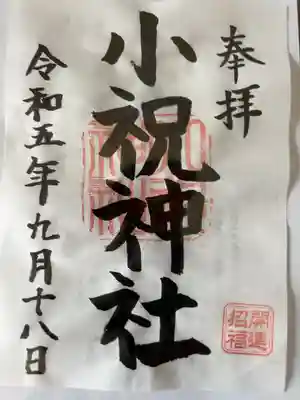 奉拝
小祝神社
開運
招福
令和五年九月十八日